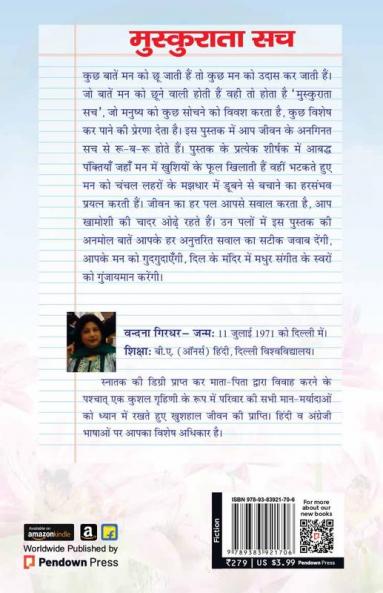 मुस्कुराता सच
कुछ बातें मन को छू जाती हैं तो कुछ मन को उदास कर जाती हैं।
जो बातें मन को छूने वाली होती हैं वही तो होता है 'मुस्कुराता
सच', जो मनुष्य को कुछ सोचने को विवश करता है, कुछ विशेष
कर पाने की प्रेरणा देता है। इस पुस्तक में आप जीवन के अनगिनत
सच से रू-ब-रू होते हैं। पुस्तक के प्रत्येक शीर्षक में आबद्ध
पंक्तियाँ जहाँ मन में खुशियों के फूल खिलाती हैं वहीं भटकते हुए
मन को चंचल लहरों के मझधार में डूबने से बचाने का हरसंभव
प्रयत्न करती हैं। जीवन का हर पल आपसे सवाल करता है, आप
खामोशी की चादर ओढ़े रहते हैं। उन पलों में इस पुस्तक की
अनमोल बातें आपके हर अनुत्तरित सवाल का सटीक जवाब देंगी,
आपके मन को गुदगुदाएँगी, दिल के मंदिर में मधुर संगीत के स्वरों
को गुंजायमान करेंगी।
वन्दना गिरधर– जन्म: 11 जुलाई 1971 को दिल्ली में।
शिक्षा: बी.ए. (ऑनर्स) हिंदी, दिल्ली विश्वविद्यालय।
स्नातक की डिग्री प्राप्त कर माता-पिता द्वारा विवाह करने के
पश्चात् एक कुशल गृहिणी के रूप में परिवार की सभी मान-मर्यादाओं
को ध्यान में रखते हुए खुशहाल जीवन की प्राप्ति। हिंदी व अंग्रेजी
भाषाओं पर आपका विशेष अधिकार है।
Available on
amazonkindle
a
Worldwide Published by
Pendown Press
Fiction
ISBN 978-93-83921-70-6
9 789383 921706
₹279 | US $3.99
For more
about our
new books
Pendown Press